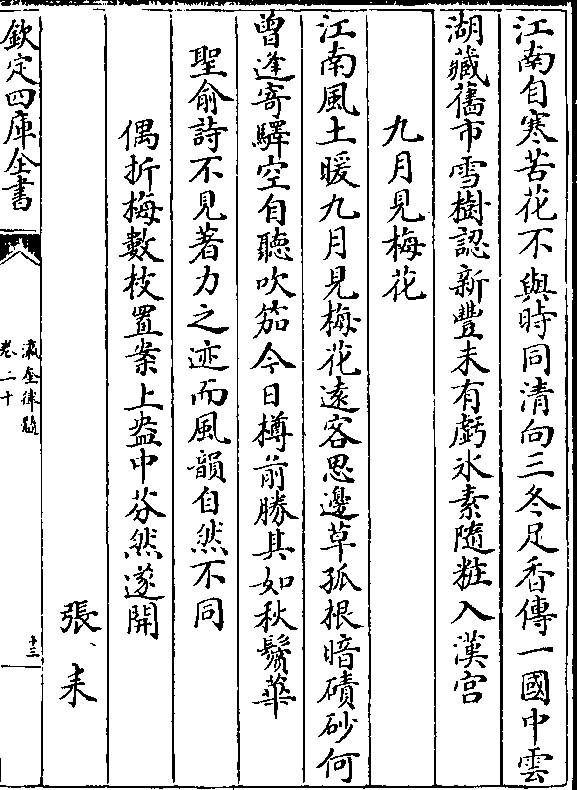 江南自寒苦花不與時同清向三冬足香傳一國中雲
湖藏舊市雪樹認新豐未有虧氷素隨粧入漢宫
九月見梅花
江南風土暖九月見梅花逺客思邊草孤根暗磧砂何
曾逢寄驛空自聽吹笳今日樽前勝其如秋鬢華
聖俞詩不見著力之迹而風韻自然不同
偶折梅數枝置案上盎中芬然遂開
張耒
欽定四庫全書
瀛奎律髓
卷二十
十三